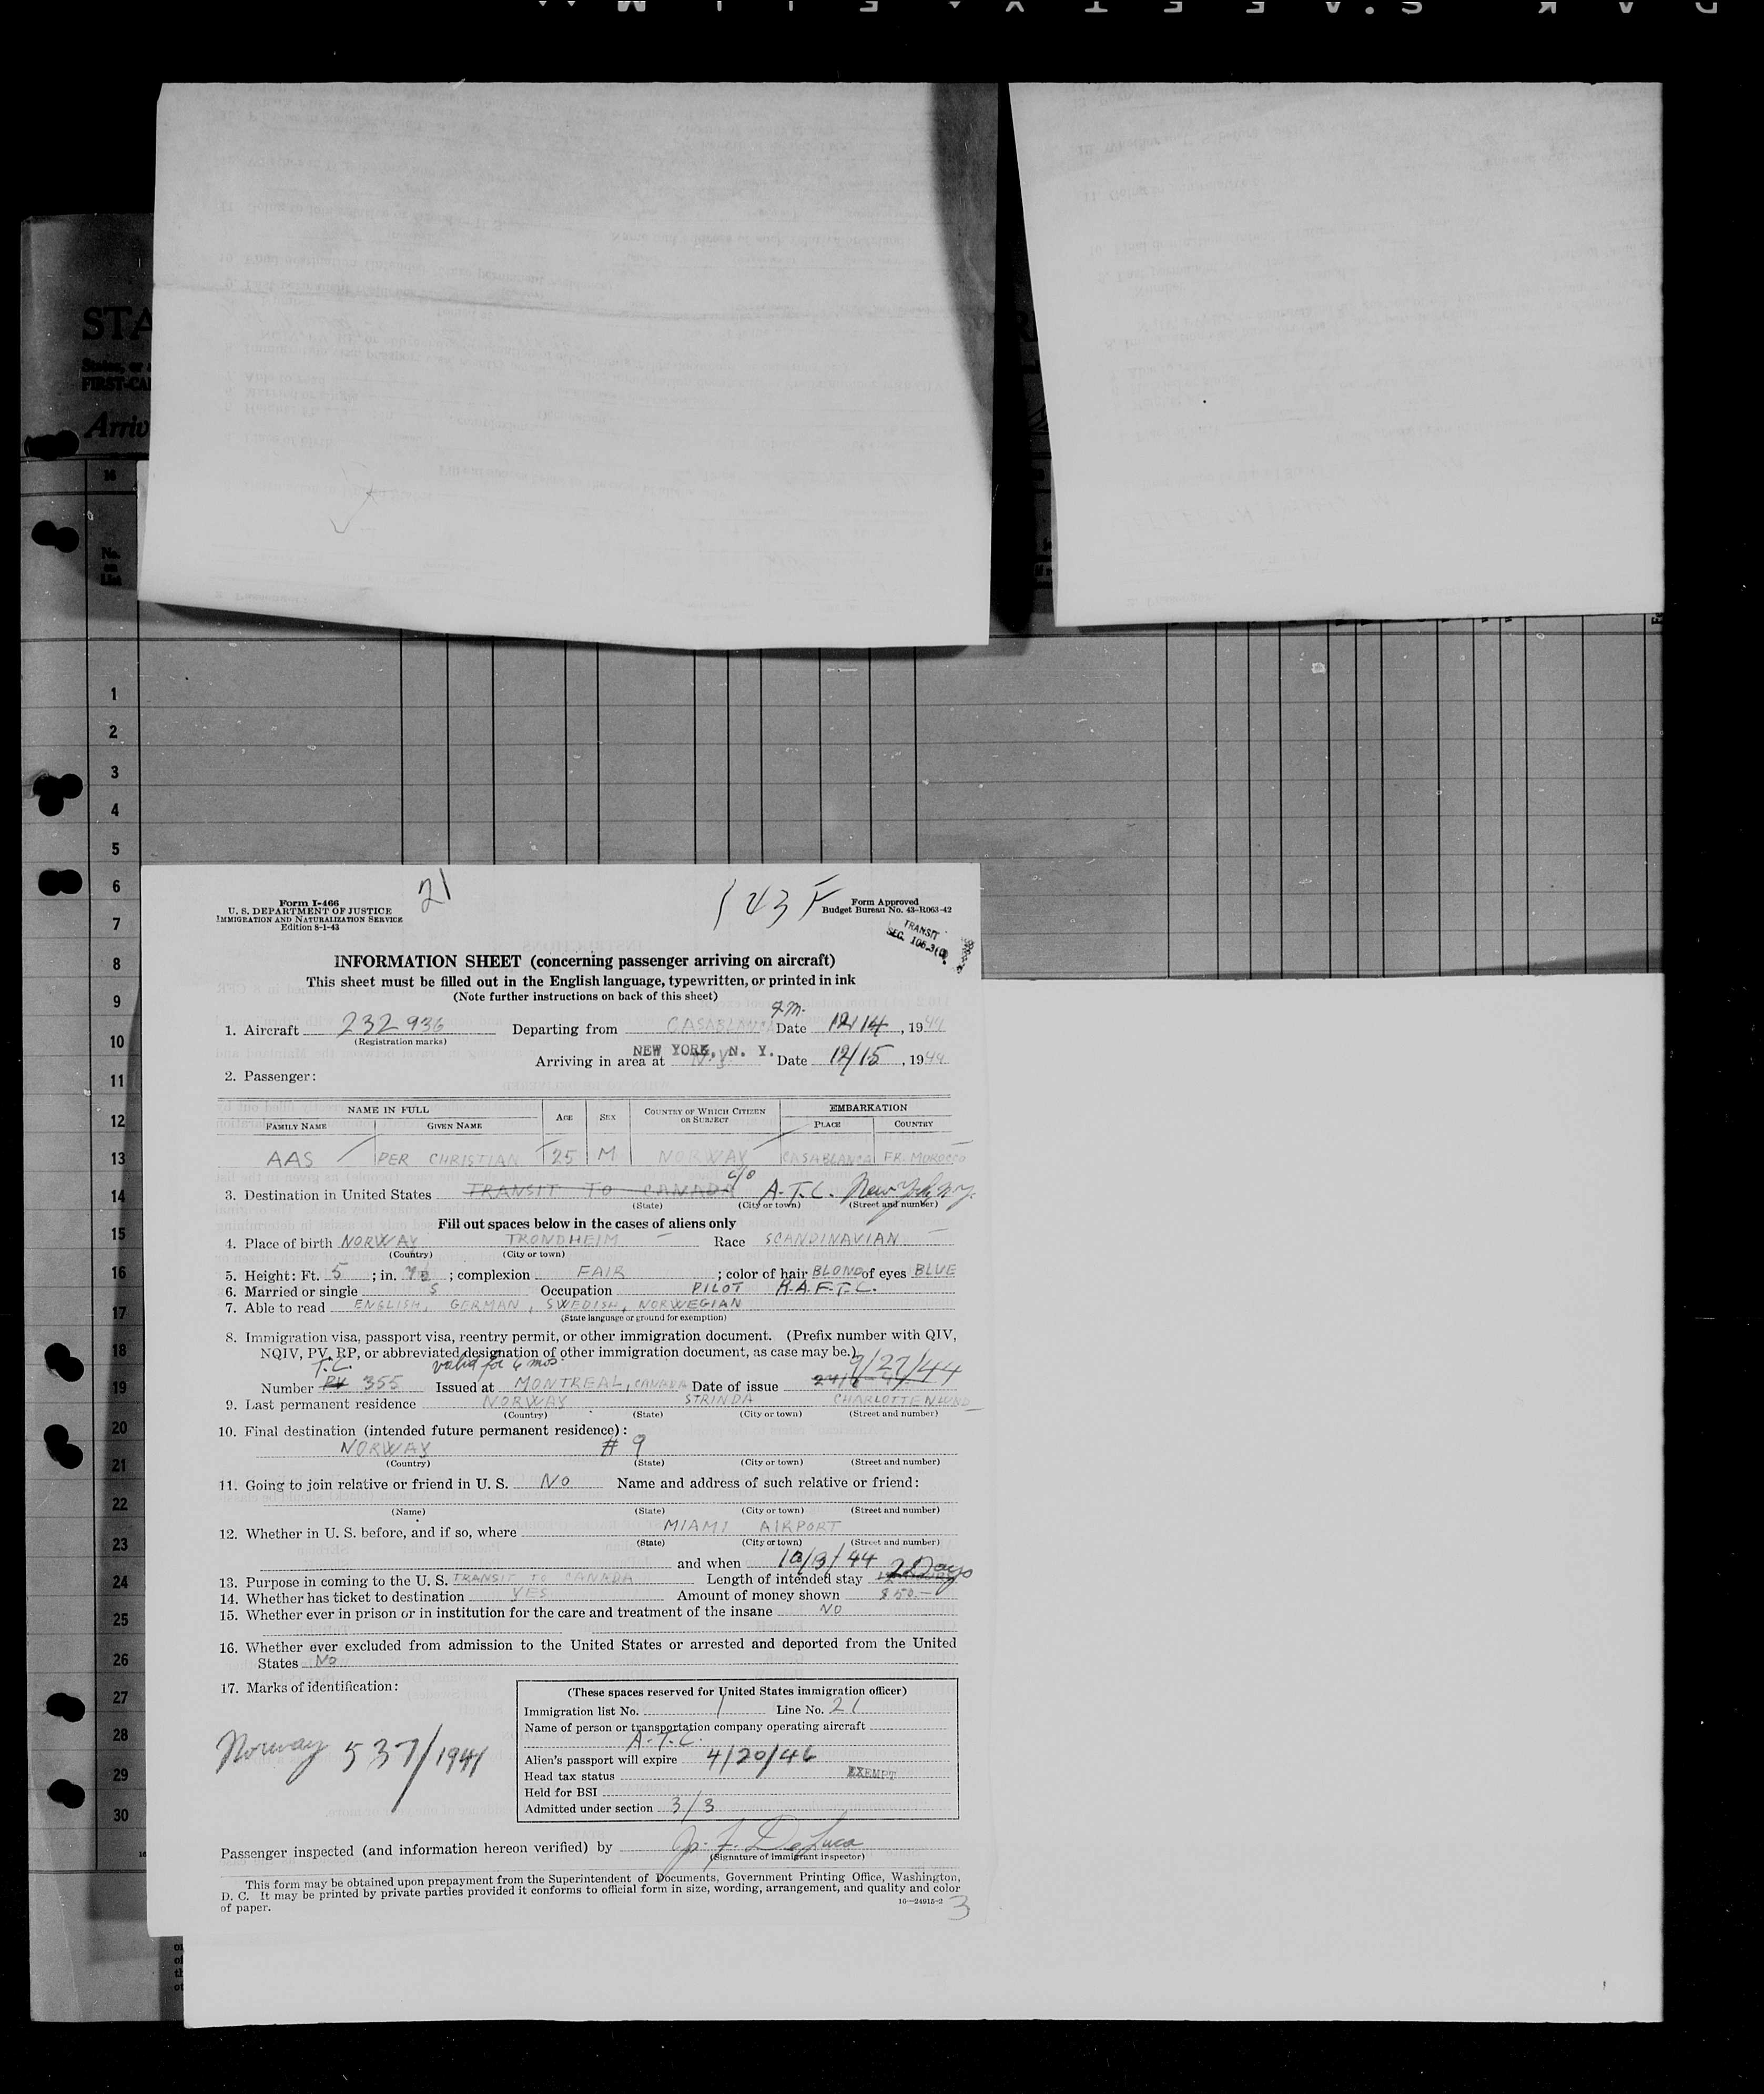 STA
FIRST-CA
Arriv
16
No.
1
2
3
4
5
6
7
8
9
10
11
12
13
14
15
16
17
18
19
20
21
22
23
24
25
26
27
28
29
30
21
143 F
Form I-466
U. S. DEPARTMENT OF JUSTICE
IMMIGRATION AND NATURALIZATION SERVICE
Edition 8-1-43
Form Approved
Budget Bureau No. 43-R063-42
TRANSIT
SEC. 106.3(
INFORMATION SHEET (concerning passenger arriving on aircraft)
This sheet must be filled out in the English language, typewritten, or printed in ink
(Note further instructions on back of this sheet)
1. Aircraft 232936 Departing from CASABLANCA Date 12/14, 1944
(Registration marks)
Arriving in area at NEW YORK, N. Y. Date 12/15, 1944
2. Passenger:
NAME IN FULL AGE SEX COUNTRY OF WHICH CITIZEN OR SUBJECT EMBARKATION
FAMILY NAME GIVEN NAME PLACE COUNTRY
AAS PER CHRISTIAN 25 M NORWAY CASABLANCA FR. MOROCCO
3. Destination in United States TRANSIT TO CANADA c/o A.T.C. New York, N.Y.
(State) (City or town) (Street and number)
Fill out spaces below in the cases of aliens only
4. Place of birth NORWAY TRONDHEIM Race SCANDINAVIAN
(Country) (City or town)
5. Height: Ft. 5; in. ; complexion FAIR; color of hair BLOND of eyes BLUE
6. Married or single S Occupation PILOT R.A.F.T.C.
7. Able to read ENGLISH, GERMAN, SWEDISH, NORWEGIAN
(State language or ground for exemption)
8. Immigration visa, passport visa, reentry permit, or other immigration document. (Prefix number with QIV,
NQIV, PV, RP, or abbreviated designation of other immigration document, as case may be.)
T.C. valid for 6 mos. 9/27/44
Number PV 355 Issued at MONTREAL, CANADA Date of issue
9. Last permanent residence NORWAY STRINDA CHARLOTTENLUND
(Country) (State) (City or town) (Street and number)
10. Final destination (intended future permanent residence):
NORWAY # 9
(Country) (State) (City or town) (Street and number)
11. Going to join relative or friend in U. S. NO Name and address of such relative or friend:
(Name) (State) (City or town) (Street and number)
12. Whether in U. S. before, and if so, where MIAMI AIRPORT
(State) (City or town) (Street and number)
and when 10/3/44
13. Purpose in coming to the U. S. TRANSIT TO CANADA Length of intended stay 2 Days
14. Whether has ticket to destination YES Amount of money shown $50.—
15. Whether ever in prison or in institution for the care and treatment of the insane NO
16. Whether ever excluded from admission to the United States or arrested and deported from the United
States NO
17. Marks of identification:
Norway 537/1941
(These spaces reserved for United States immigration officer)
Immigration list No. 1 Line No. 21
Name of person or transportation company operating aircraft
A.T.C.
Alien's passport will expire 4/20/46
Head tax status EXEMPT
Held for BSI
Admitted under section 3/3
Passenger inspected (and information hereon verified) by J. F. DeLuca
(Signature of immigrant inspector)
This form may be obtained upon prepayment from the Superintendent of Documents, Government Printing Office, Washington,
D. C. It may be printed by private parties provided it conforms to official form in size, wording, arrangement, and quality and color
of paper.
16—24915-2
3